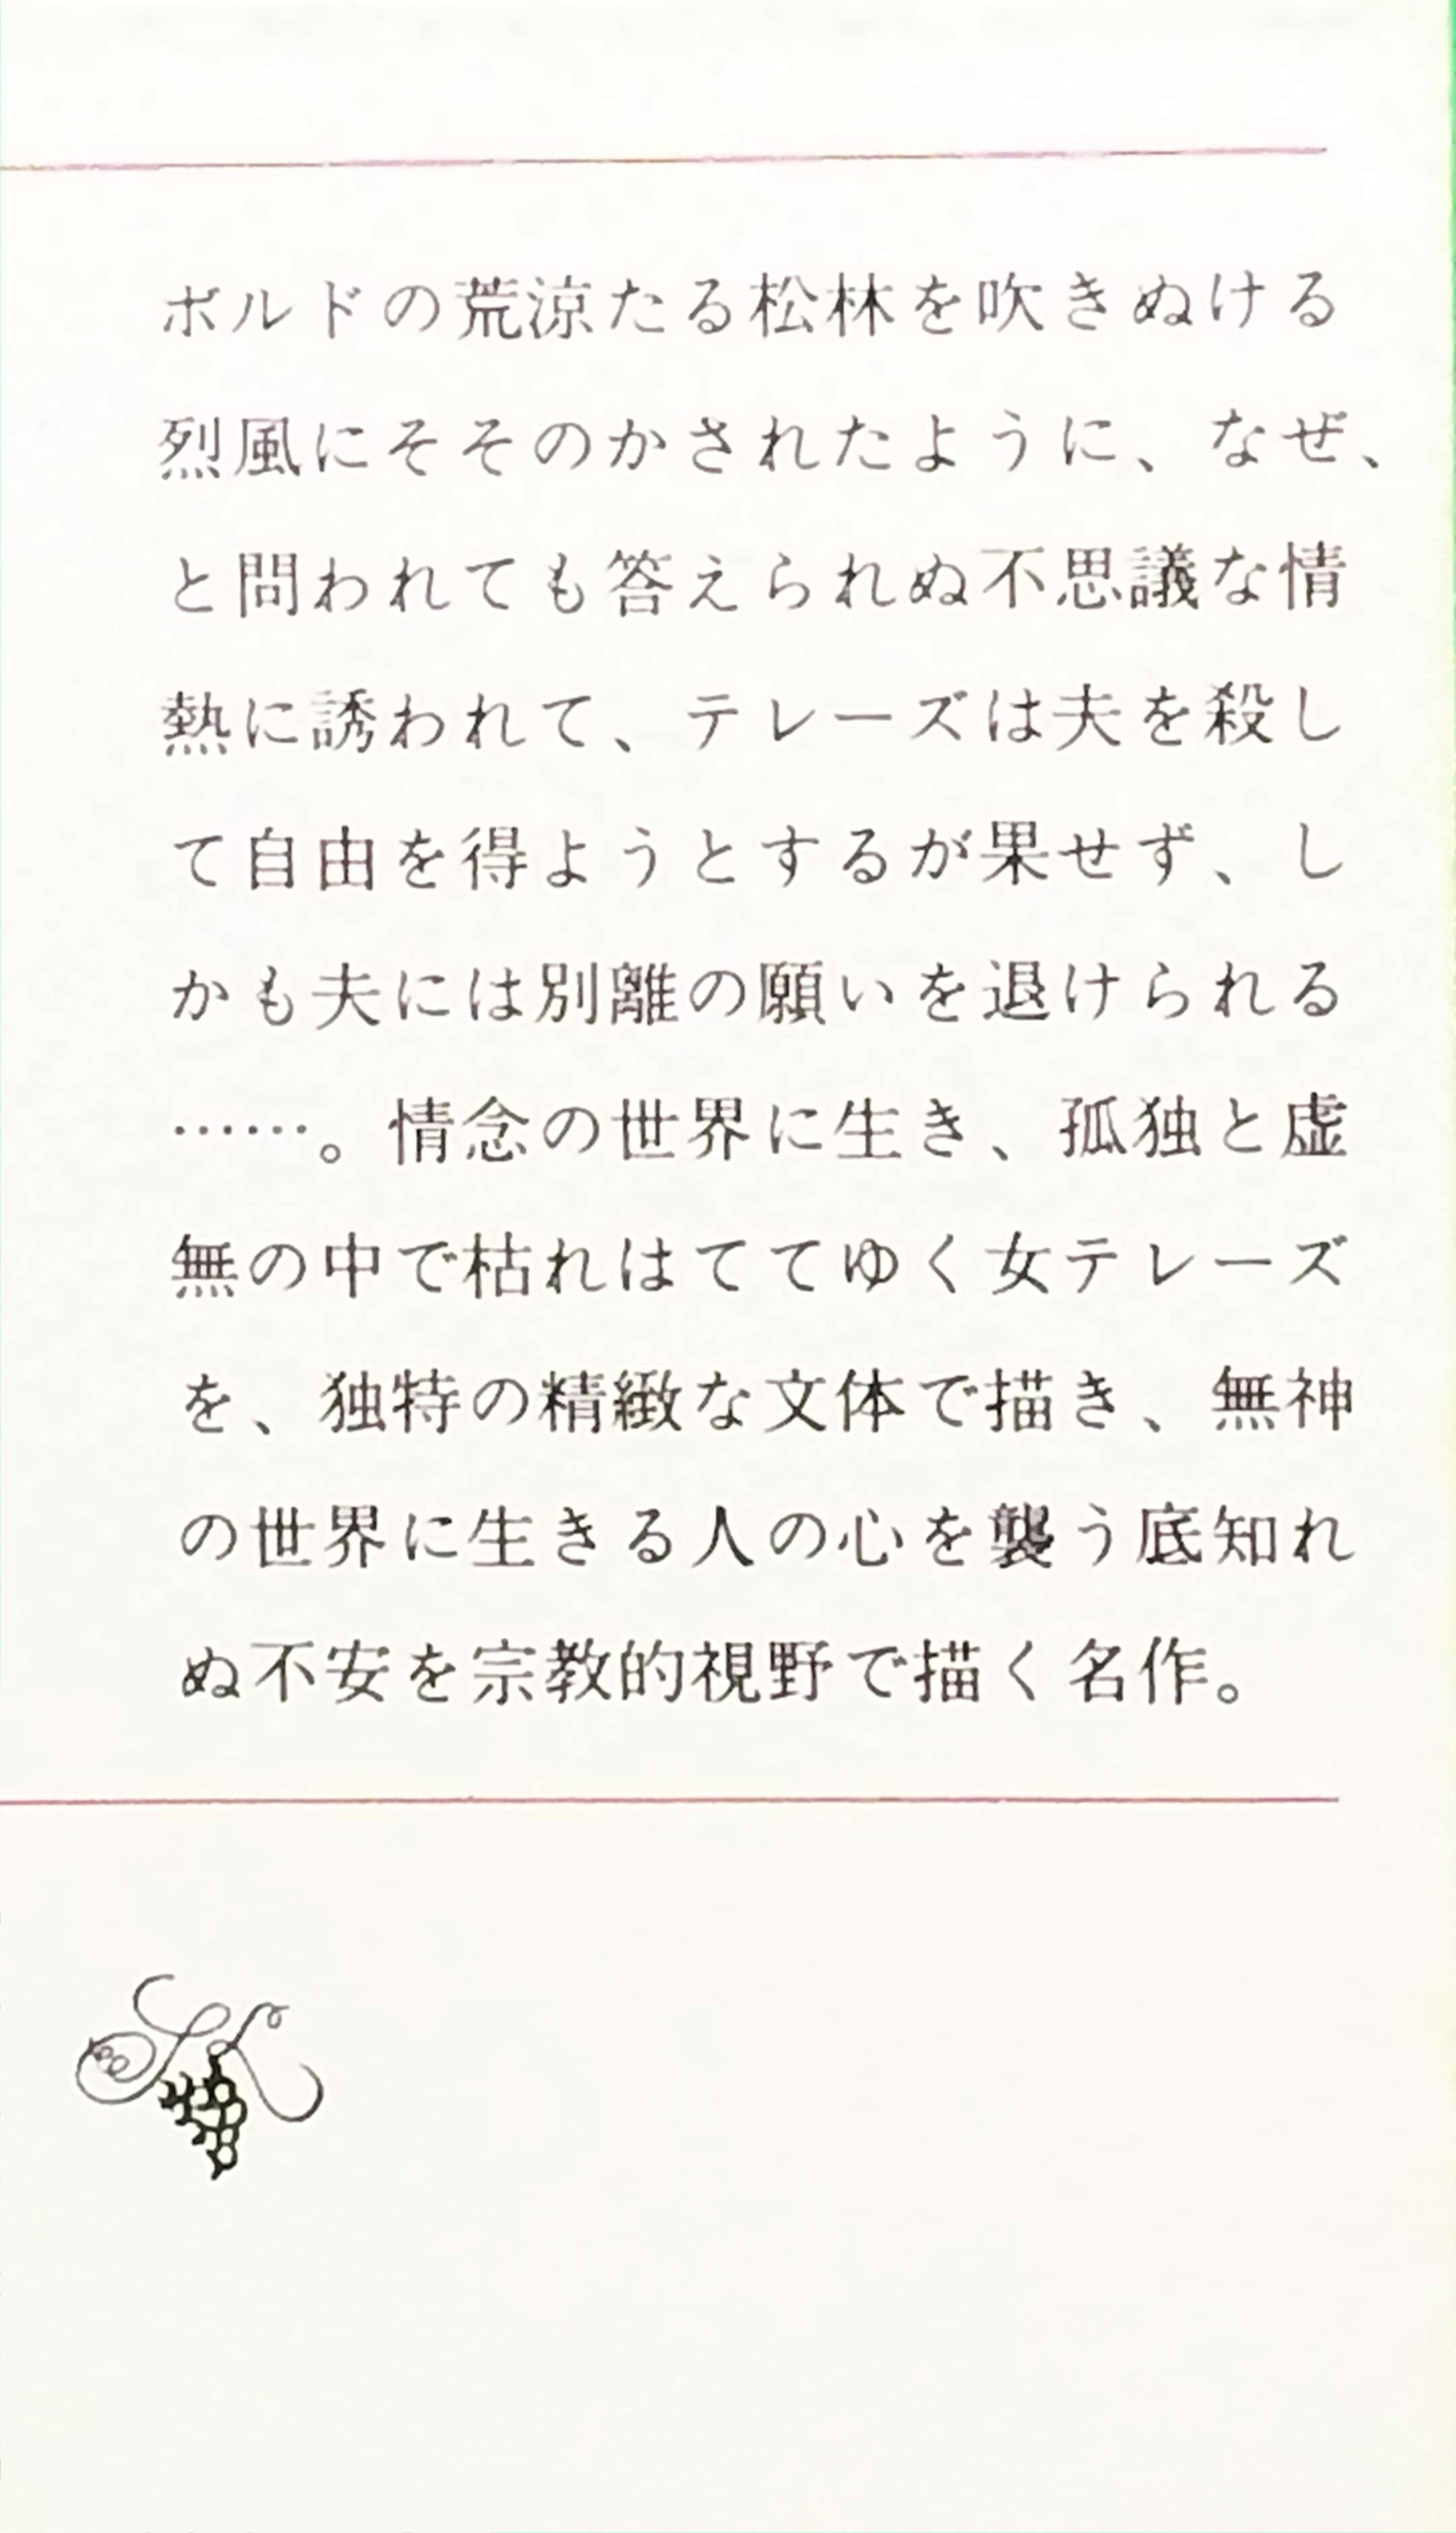 ボルドの荒涼たる松林を吹きぬける
烈風にそそのかされたように、なぜ、
と問われても答えられぬ不思議な情
熱に誘われて、テレーズは夫を殺し
て自由を得ようとするが果せず、し
かも夫には別離の願いを退けられる
……。情念の世界に生き、孤独と虚
無の中で枯れはててゆく女テレーズ
を、独特の精緻な文体で描き、無神
の世界に生きる人の心を襲う底知れ
ぬ不安を宗教的視野で描く名作。